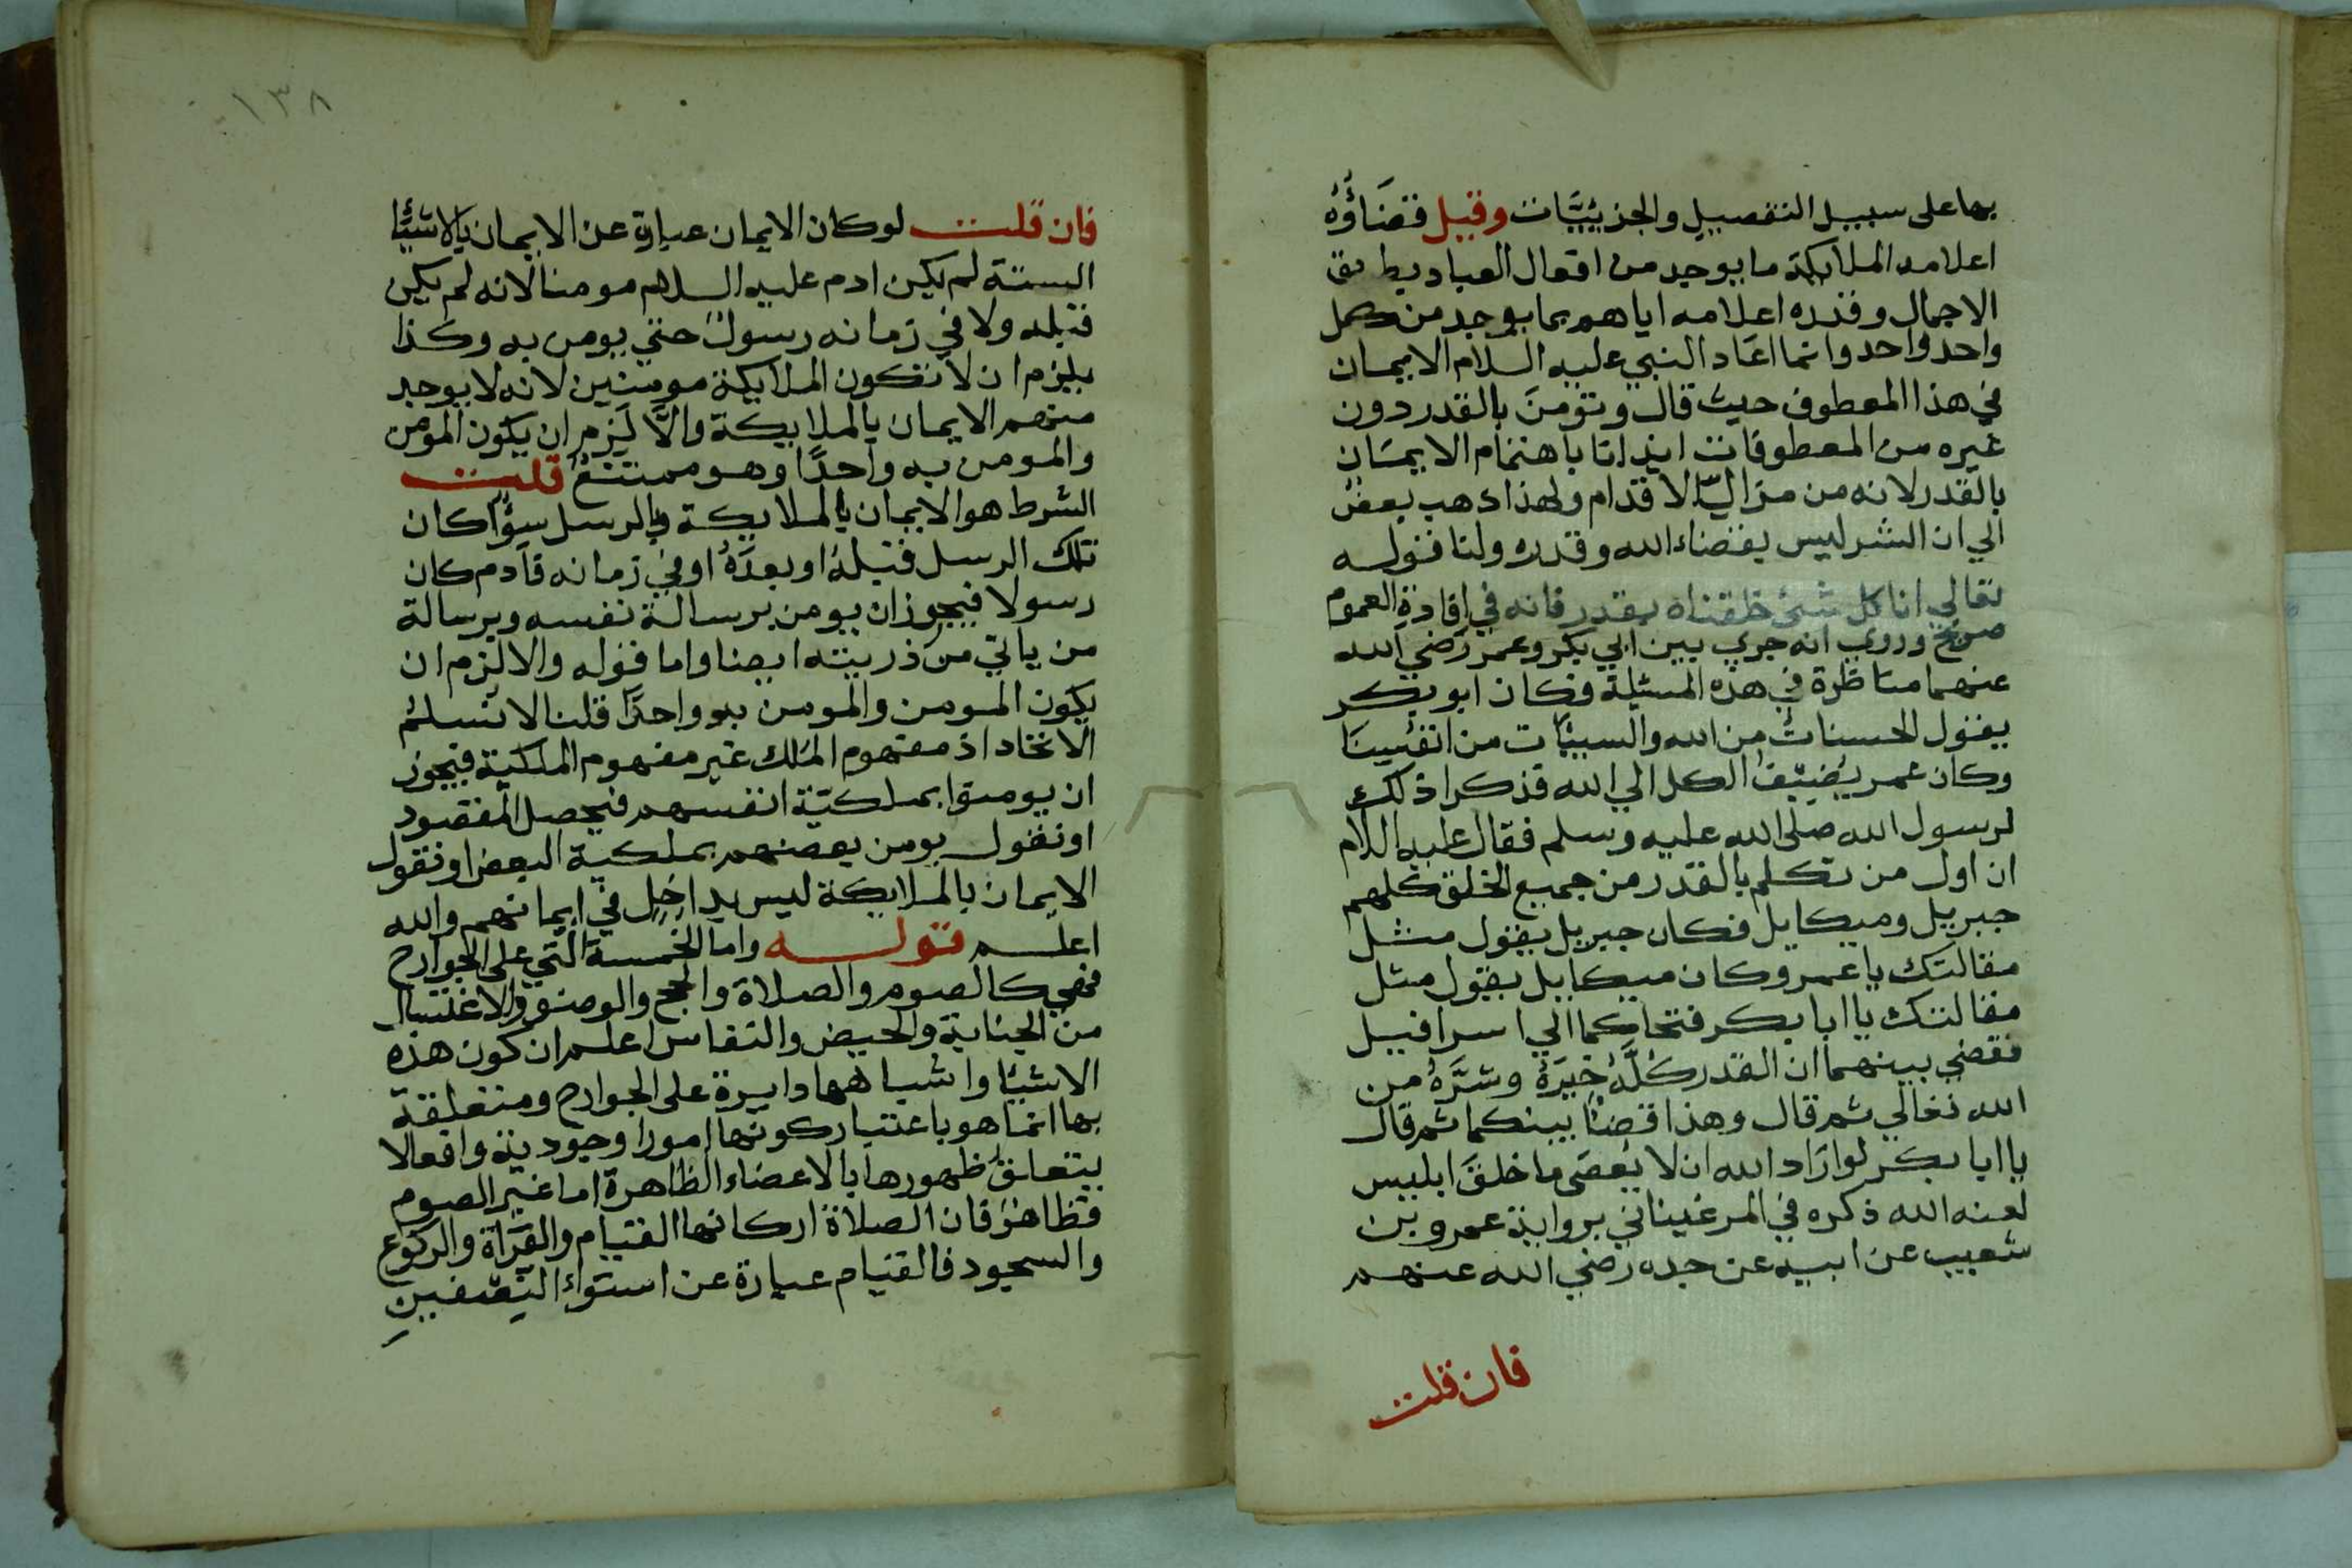 بها على سبيل التفصيل والجزئيّات وقيل فقضَاؤُهُ
اعلامه الملايكة ما يوجد من افعال العباد بطريق
الاجمال وقدره اعلامه اياهم بما يوجد من كل
واحد واحد وانما اعَاد النبي عليه السلام الايمان
في هذا المعطوف حيث قال وتؤمنَ بالقدر دون
غيره من المعطوفات ايذانا باهتمام الايمَان
بالقدر لانه من مزالّ الاقدام ولهذا ذهب بعضٌ
الي ان الشر ليس بقضاء الله وقدره ولنا قوله
تعالي انا كل شئ خلقناه بقدر فانه في افادة العموم
صريح وروي انه جري بين ابي بكر وعمر رَضي الله
عنهما مناظرة في هذه المسئلة فكان ابو بكر
يقول الحسناتُ من الله والسيئات من انفُسِنَا
وكان عمر يُضيفُ الكل الي الله فذكرا ذلك
لرسول الله صلى الله عليه وسلم فقال عليه اللام
ان اول من تكلم بالقدر من جميع الخلق كلهم
جبريل وميكايل فكان جبريل يقول مثل
مقالتك يا عمر وكان ميكايل يقول مثل
مقالتك يا ابا بكر فتحاكما الي اسرافيل
فقضي بينهما ان القدر كُلَّهُ خَيْرَهُ وشرَّهُ من
الله تعالي ثم قال وهذا قضَائ بينكما ثم قال
يا ابا بكر لو ارَاد الله ان لا يُعصَى ما خلقَ ابليس
لعنه الله ذكره في المرغيناني برواية عمرو بن
شعيب عن ابيه عن جده رضي الله عنهم
فان قلت
١٣٨
فان قلت لو كان الايمان عبارة عن الايمان بالاشيَا
الستة لم يكن ادم عليه السلام مومنا لانه لم يكن
قبله ولا في زمانه رسولٌ حتي يومن به وكذا
يلزم ان لا تكون الملايكة مومنين لانه لا يوجد
منهم الايمان بالملايكة والَّا لَزِم ان يكون المومن
والمومن به واحدًا وهو ممتنعٌ قلت
الشرط هو الايمان بالملايكة وبالرسل سوًا كان
تلك الرسل قبلهُ او بعدَهُ او في زمانه فآدم كان
رسولا فيجوز ان يومن برسالة نفسه وبرسالة
من ياتي من ذريته ايضا واما قوله والا لزم ان
يكون المومن والمومن به واحدًا قلنا لا نسلم
الاتحاد اذ مفهوم المَلك غير مفهوم الملكية فيجوز
ان يومنوا بملكيّة انفسهم فيحصل المقصود
او نقول يومن بعضهم بملكية البعض او نقول
الايمان بالملايكة ليس بداخِل في ايمانهم والله
اعلم قوله واما الخمسة التي على الجوارح
فهي كالصوم والصلاة والحج والوضو والاغتسال
من الجنابة والحيض والنفاس اعلم ان كون هذه
الاشيَا واشباهها دايرة على الجوارح ومتعلقة
بها انما هو باعتبار كونها امورا وجودية وافعالا
يتعلق ظهورها بالاعضاء الظاهرة اما غير الصوم
فظاهرٌ فان الصلاة اركانها القيام والقرَاة والركوع
والسجود فالقيام عبارة عن استواء النصفين